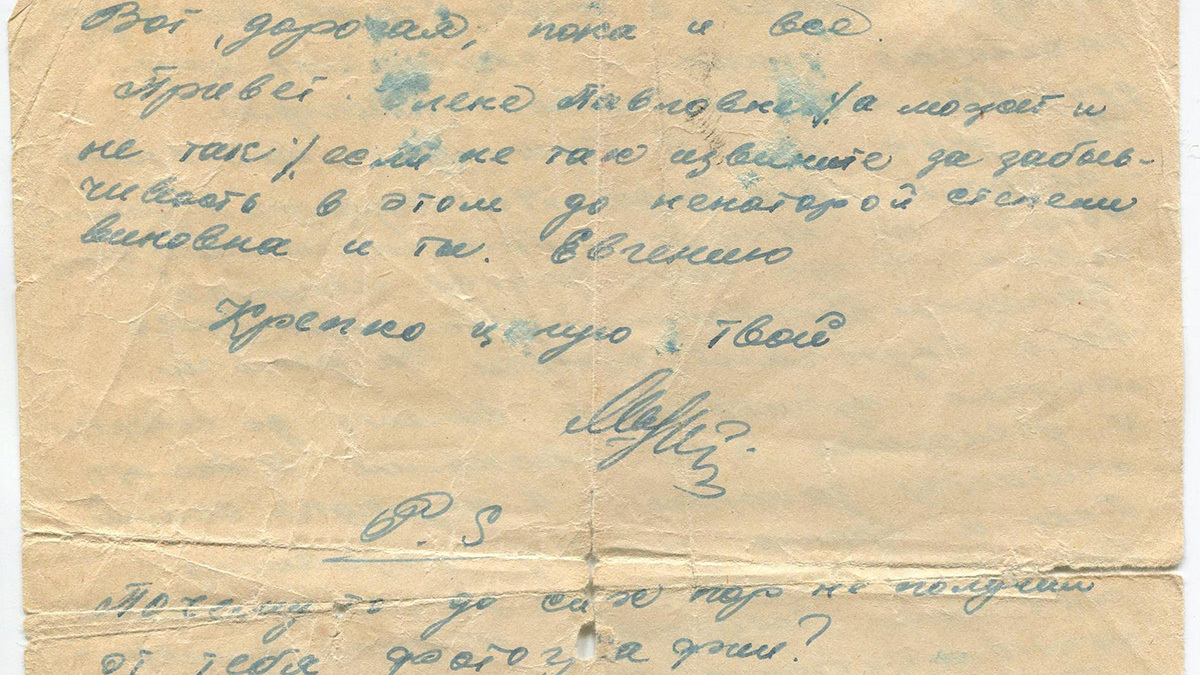 Вот, дорогая, пока и все.
Привет. Елене Павловне /а может и
не так/ если не так извините за забыв-
чивость в этом до некоторой степени
виновна и ты. Евгению
Крепко целую твой
P. S
Почему то до сих пор не получил
от тебя фотографии?